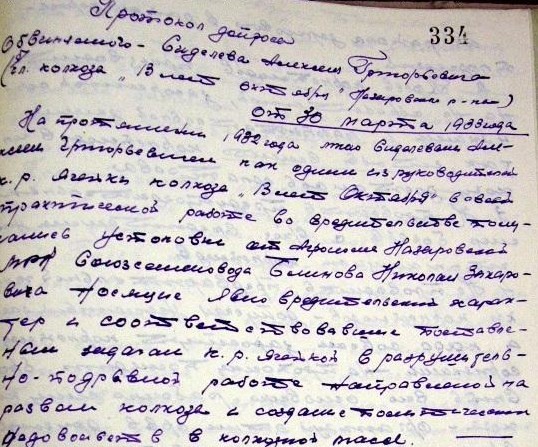 334
Протокол допроса
Обвиняемого - Сиделева Алексея Григорьевича
(чл. колхоза „В лет октября" Назаровского р-на)
От 30 марта 1933 года
На протяжении 1932 года мною Сиделевым Але-
ксеем Григорьевичем как одним из руководителей
к.р. ячейки колхоза „В лет Октября" в своей
практической работе во вредительстве полу-
чались установки от Агронома Назаровской
Союзсеменовода Блинова Николая Захаро-
вича носящие явно вредительский харак-
тер и соответствовавшие поставле-
ным задачам к.р. ячейкой в разрушитель-
но-подрывной работе направленной на
развал колхоза и создание политических
недовольств в колхозной массе.